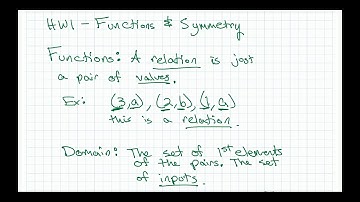 HW1 - Functions & Symmetry
Functions: A relation is just
a pair of values.
Ex: (3,a), (2,b), (1,c)
this is a relation.
Domain: The set of 1st elements
of the pairs. The set
of inputs.